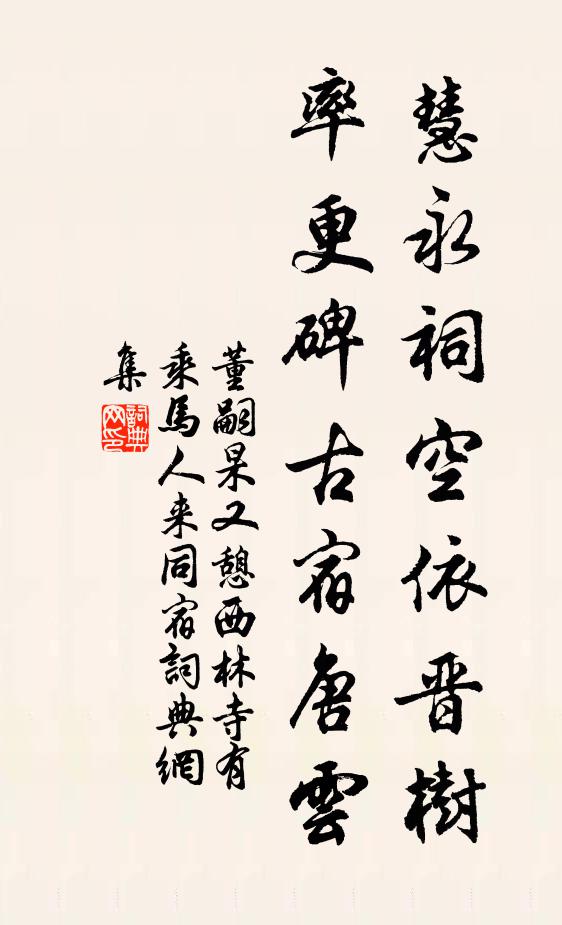 慧永祠空依晋樹
率更碑古宿唐雲
董嗣杲又憩西林寺有
乘馬人来同宿詞典網
集
詞典
网印